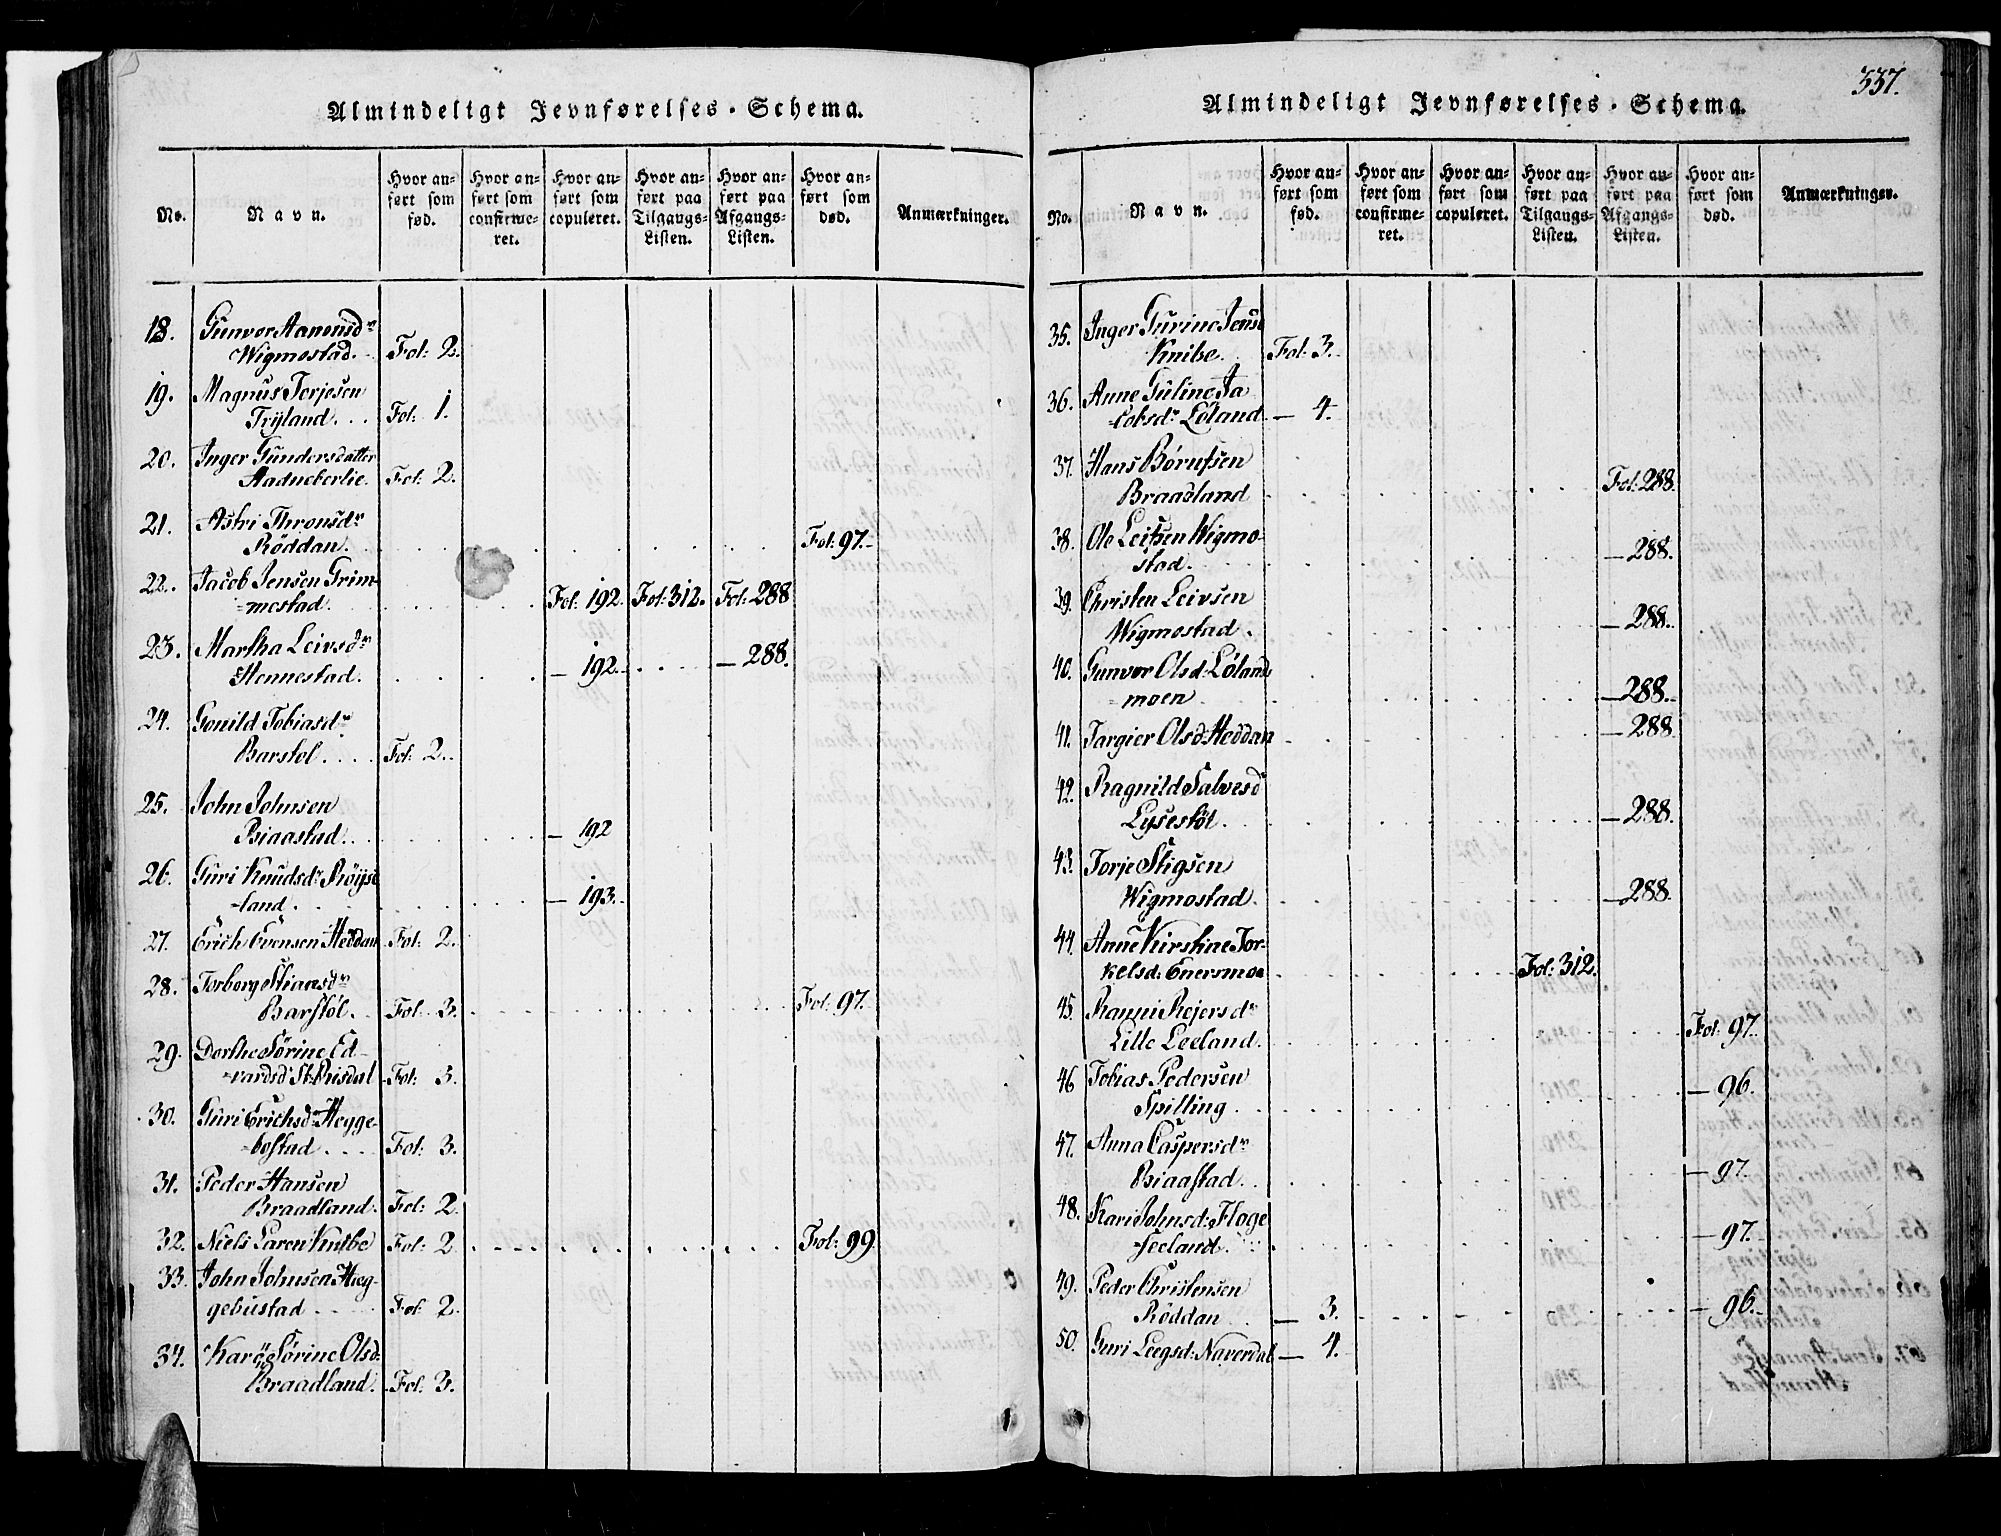 337.
Almindeligt Jevnførelses-Schema.
No.
Navn.
Hvor anført som fød.
Hvor anført som confirmeret.
Hvor anført som copuleret.
Hvor anført paa Tilgangs-Listen.
Hvor anført paa Afgangs-Listen.
Hvor anført som død.
Anmærkninger.
18. Gunvor Aanensdr
Wigmostad. Fol: 2.
19. Magnus Terjesen
Tryland... Fol: 1.
20. Inger Gundersdatter
Fol: 2.
21. Astri Thronsdr
Røddan. Fol: 97.
22. Jacob Jensen Grim=
=mestad. Fol: 192. Fol: 312. Fol: 288
23. Martha Leivsdr
Hennestad. — 192. — 288.
24. Gonild Tobiasdr
Barstol.... Fol: 2.
25. John Johnsen
Biaastad. — 192
26. Guri Knudsdr Røijse
=land. — 193.
27. Erich Evensen Heddan Fol: 2.
28. Torborg Stiansdr
Barstøl. Fol: 3. Fol: 97.
29. Dorthe Sørine Ed-
=vardsdr St: Risdal Fol: 3.
30. Guri Erichsdr Hegge-
=bostad.... Fol: 3.
31. Peder Hansen
Braadland. Fol: 2.
32. Niels Laren Knibe Fol: 2. Fol: 99.
33. John Johnsen Heg-
gebustad.... Fol: 2.
34. Sørine Olsd:
Braadland. Fol: 3.
Almindeligt Jevnførelses-Schema.
No.
Navn.
Hvor anført som fød.
Hvor anført som confirmeret.
Hvor anført som copuleret.
Hvor anført paa Tilgangs-Listen.
Hvor anført paa Afgangs-Listen.
Hvor anført som død.
Anmærkninger.
35. Inger Turine Jensd
Knibe. Fol: 3.
36. Anne Juline Ja
=cobsdr Löland. — 4.
37. Hans Børufsen
Braadland Fol: 288.
38. Ole Leifsen Wigmo-
stad. — 288.
39. Christen Leivsen
Wigmostad. — 288.
40. Gunvor Olsd: Lölands
=moen. — 288.
41. Targier Olsd: Heddan — 288.
42. Ragnild Salvesd
Lysestöl. — 288.
43. Torje Stigsen
Wigmostad. — 288.
44. Anne Kirstine Tor=
kelsd: Enersmoe Fol: 312.
45. Ranni Rejersdr
Lille Leeland. Fol: 97.
46 Tobias Pedersen
Spilling. — 96.
47. Anna Caspersdr
Biaastad. — 97.
48. Kari Johnsd: Flage
=seeland. — 97.
49. Peder Christensen
Røddan — 3. — 96.
50. Guri Leegsd: Naverdal — 4.